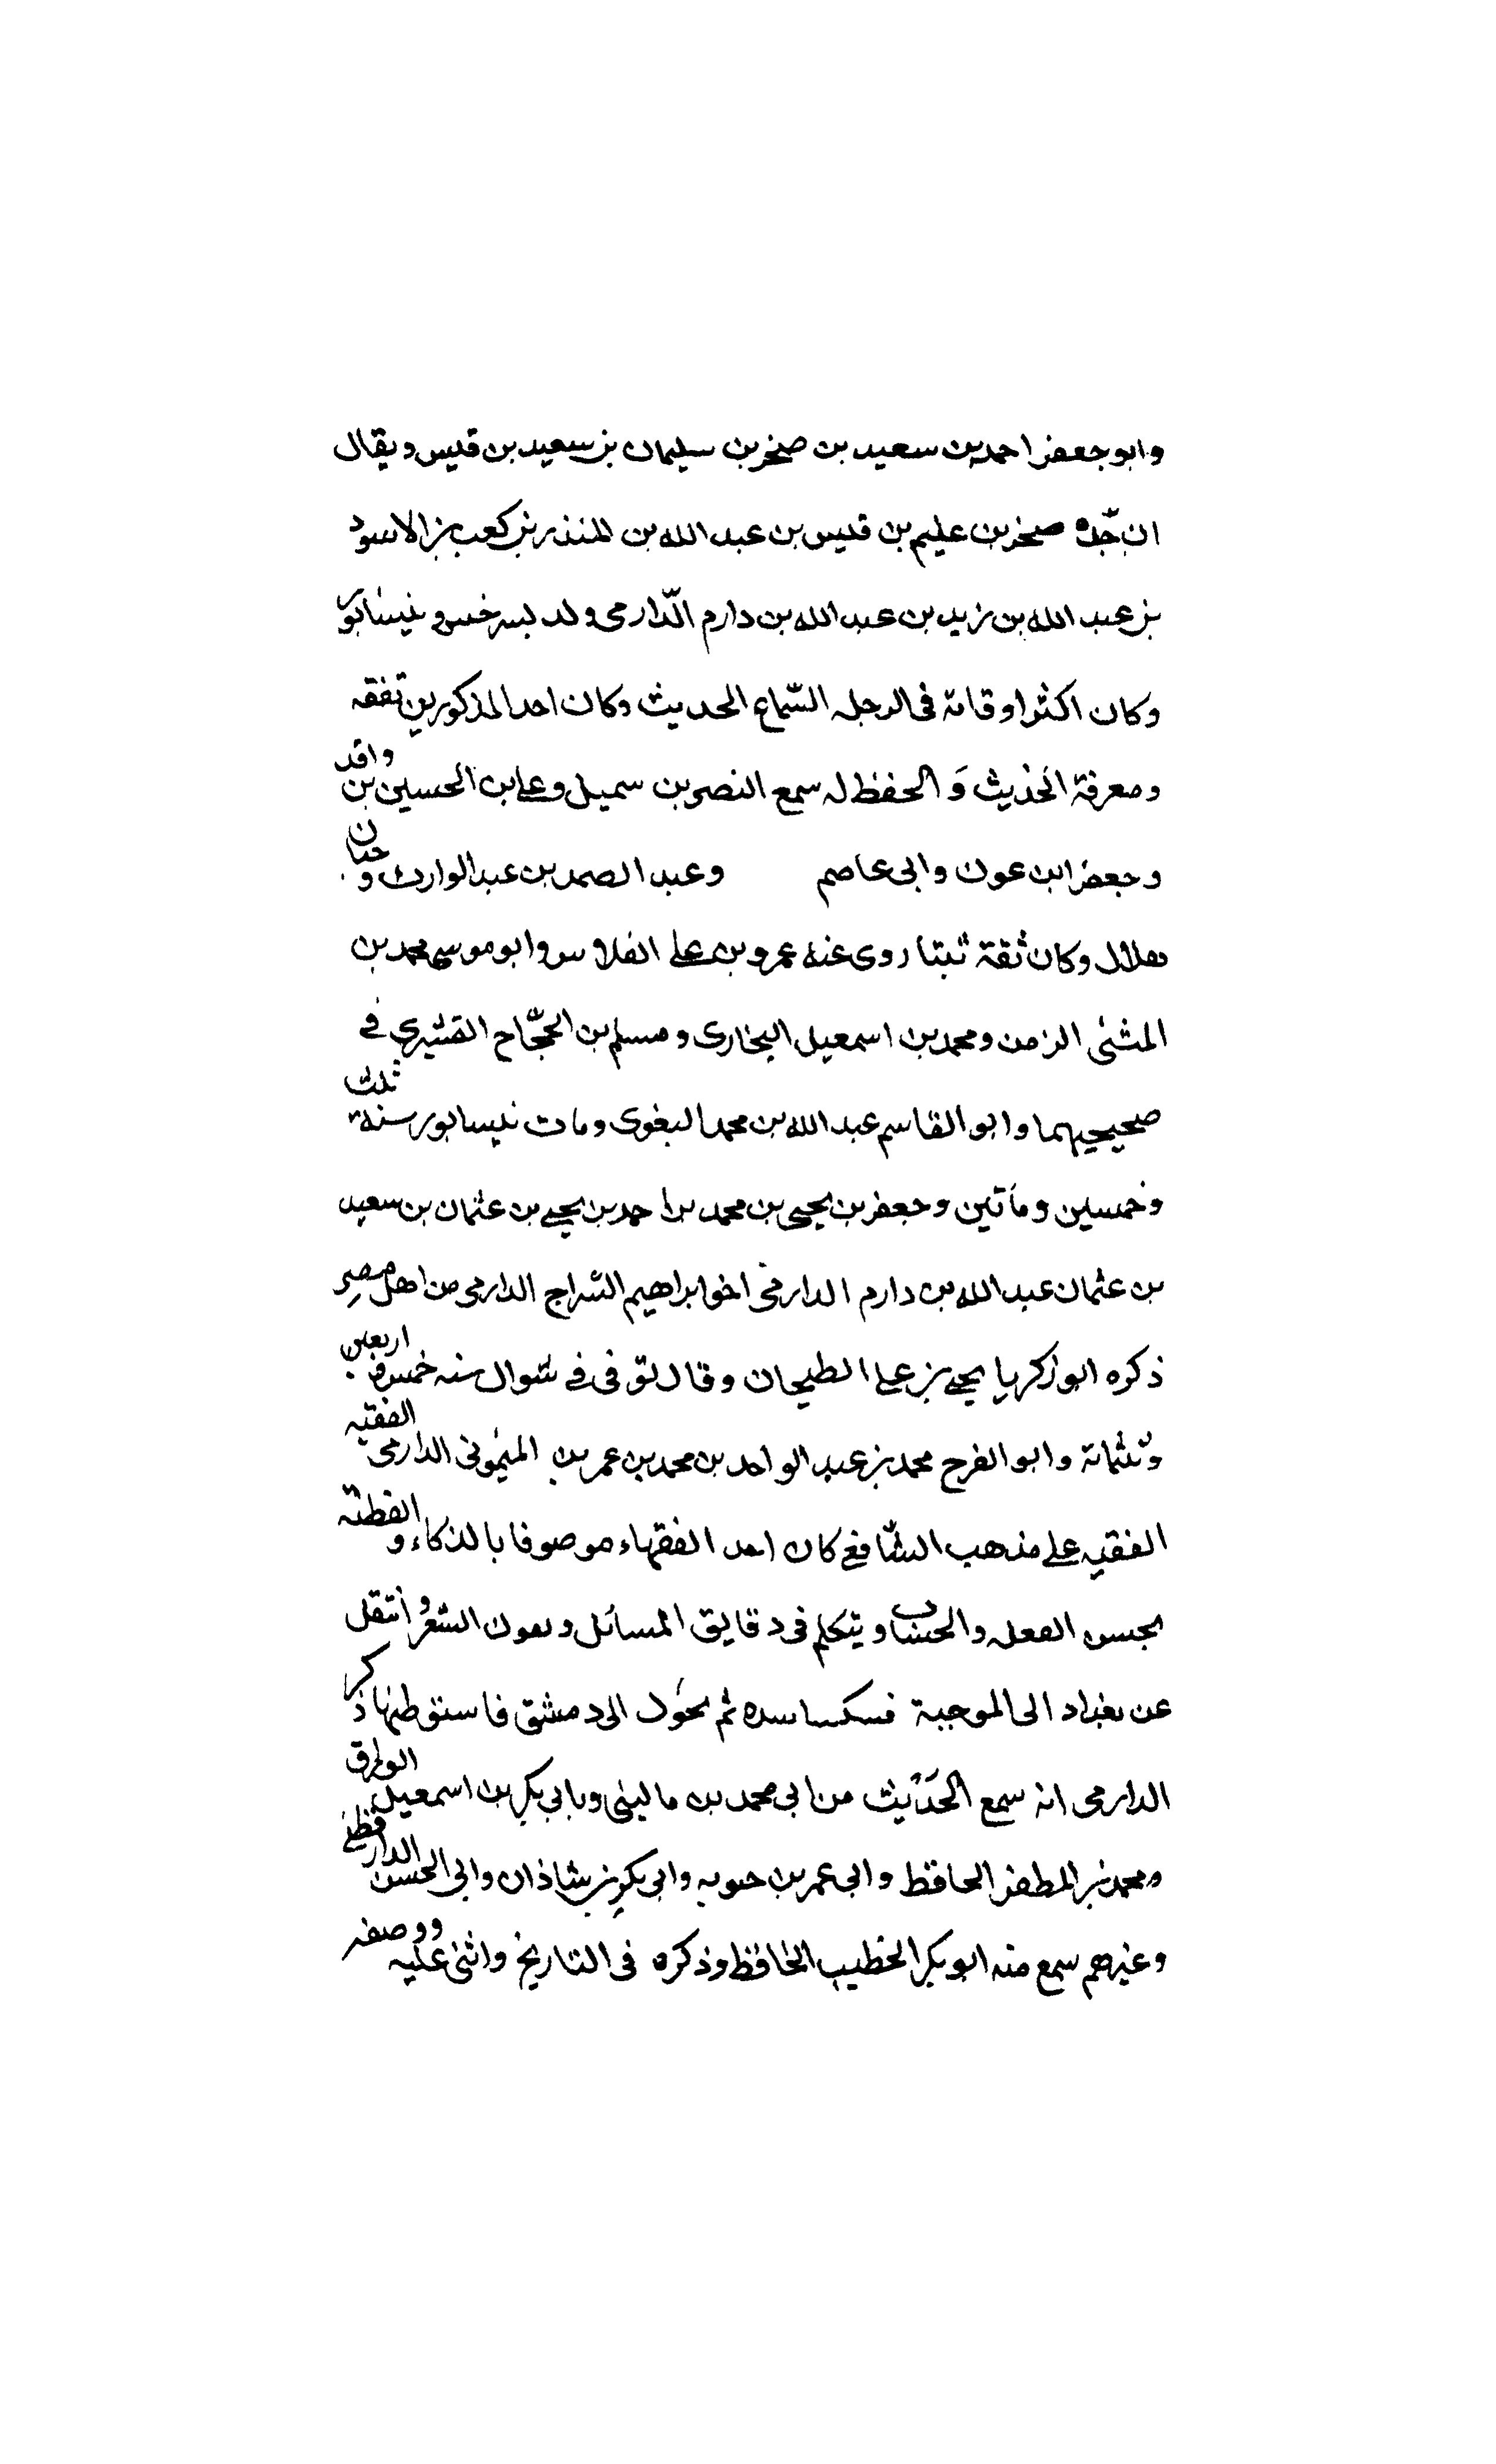 وابو جعفر احمد بن سعيد بن صخر بن سليمان بن سعيد بن قيس ويقال
ان جدّه صخر بن عليم بن قيس بن عبد الله بن المنذر بن كعب بن الاسود
بن عبد الله بن زيد بن عبد الله بن دارم الدّارمى ولد بسرخس و نيسابور
وكان اكثر اوقاته فى الرحله السّماع الحديث وكان احد المذكورين تفقه
ومعرفة الحديث وَ الحفظ له سمع النصر بن سميل وعلى بن الحسين بن واقد
وجعفر ابن عون وابى عاصم وعبد الصمد بن عبد الوارث و حبان
هلال وكان ثقة ثبتا روى عنه عمرو بن على الفلاس وابو موسى محمد بن
المثنى الزمن ومحمد بن اسمعيل البخارى ومسلم بن الحجّاج القشيرى فى
صحيحيهما وابو القاسم عبد الله بن محمد البغوى ومات نيسابور سنة ثلث
وخمسين ومأتين وجعفر بن يحيى بن محمد بن احمد بن يحيى بن عثمان بن سعيد
بن عثمان عبد الله بن دارم الدارمى اخو ابراهيم السّراج الدارمى من اهل مصر
ذكره ابو زكريا يحيى بن على الطحان وقال توفى فى شوال سنه خمس و اربعين
وثلثمائة وابو الفرج محمد بن عبد الواحد بن محمد بن عمر بن الميمونى الدارمى الفقيه
الفقيه على مذهب الشّافعى كان احد الفقهاء موصوفا بالذكاء و الفطنة
يحسن الفعله والحساب ويتكلم فى دقايق المسائل و يقول الشعر و انتقل
عن بغداد الى الموجبة فسكنها مده ثم تحوّل الى دمشق فاستوطنها ذكر
الدارمى انه سمع الحَدَيث من ابى محمد بن ماليتى وبابى بكر بن اسمعيل الوراق
ومحمد بن المظفر الحافظ وابى عمر بن حيويه وابى بكر بن شاذان وابى الحسن الدارقطنى
وغيرهم سمع منه ابو بكر الخطيب الحافظ وذكره فى التاريخ واثنى عليه ووصفه